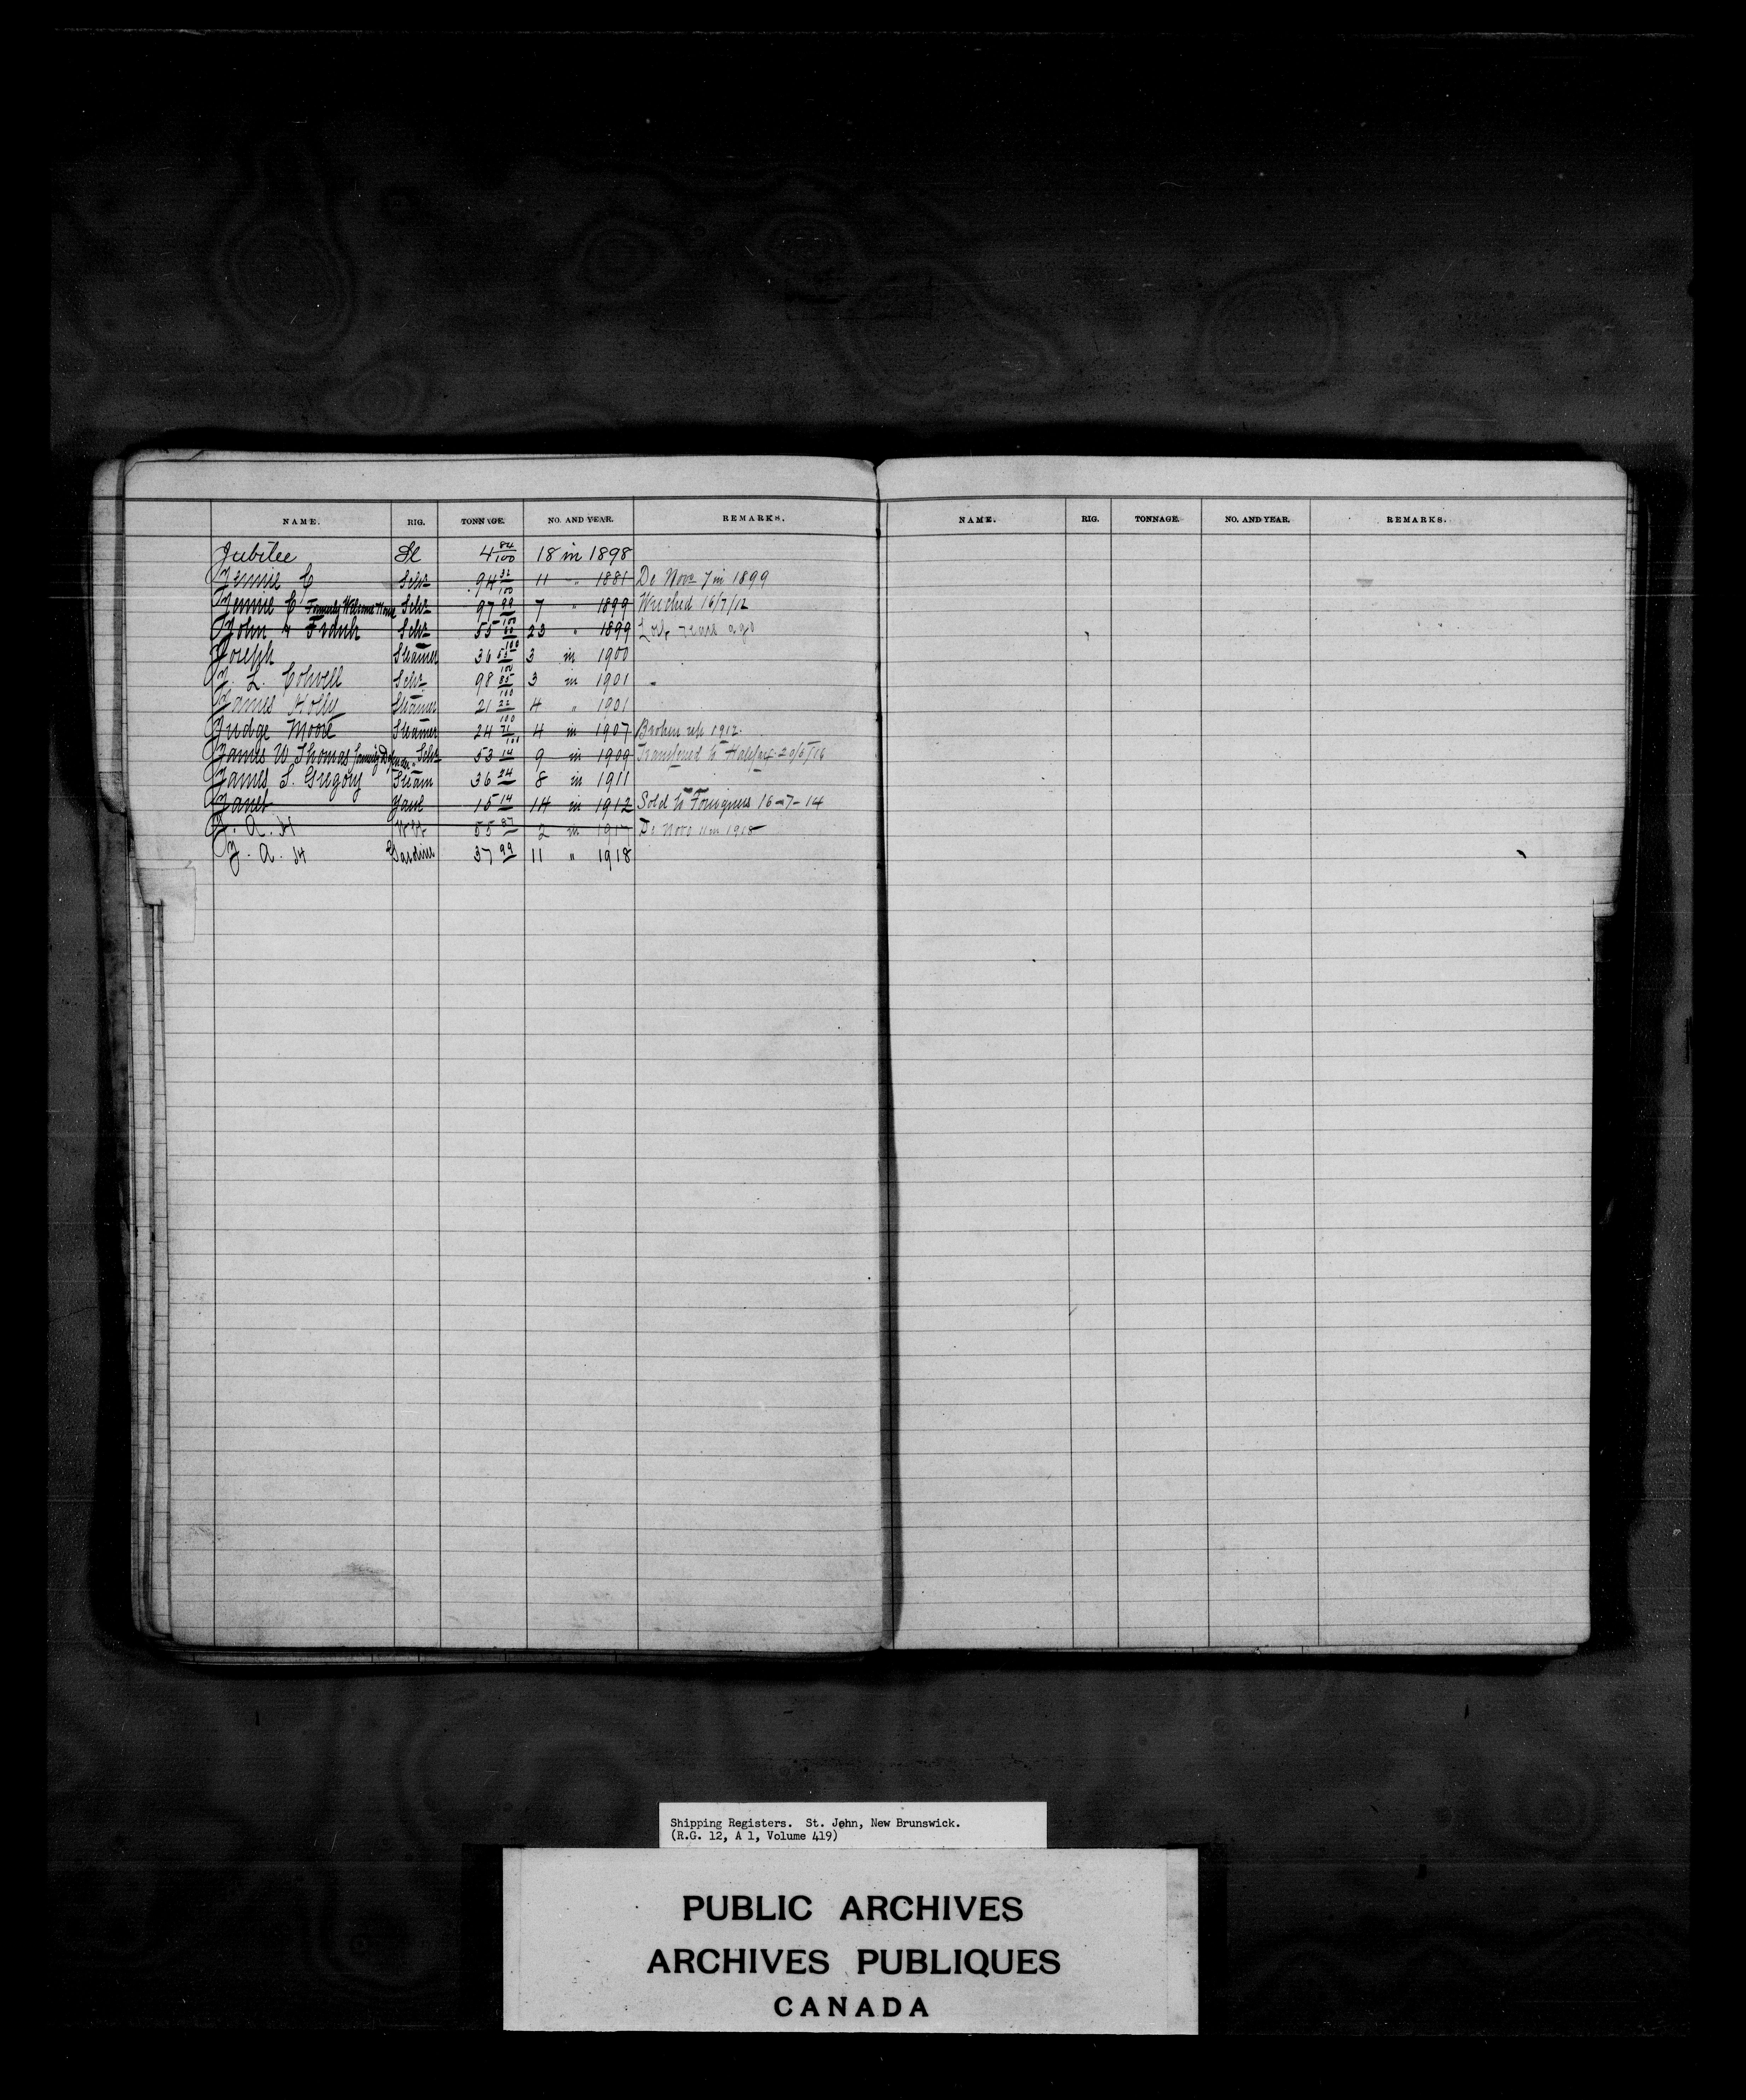 NAME. RIG. TONNAGE. NO. AND YEAR. REMARKS.
Jubilee Sl 4 84/100 18 in 1898
Jennie C Schr 94 32/100 11 " 1881 De Novo 7 in 1899
Jennie C Formerly Welcome Home Schr 97 99/100 7 " 1899 Wrecked 16/7/12
John & Frank Schr 55 /100 23 " 1899 Lost years ago
Joseph Steamer 36 53/100 3 in 1900
J. L. Colwell Schr 98 85/100 3 in 1901
James Holly Steamer 21 22/100 4 " 1901
Judge Moore Steamer 24 71/100 4 in 1907 Broken up 1912
James W Thomas Schr 53 14 9 in 1909 Transferred to Halifax 20/5/16
James S. Gregory Steam 36 24 8 in 1911
Janet Yawl 15 14 14 in 1912 Sold to Foreigners 16-7-14
J. A. H 55 87 2 in 1917 De Novo 11 in 1918
J. A. H Sardine 37 99 11 " 1918
NAME. RIG. TONNAGE. NO. AND YEAR. REMARKS.
Shipping Registers. St. John, New Brunswick.
(R.G. 12, A 1, Volume 419)
PUBLIC ARCHIVES
ARCHIVES PUBLIQUES
CANADA